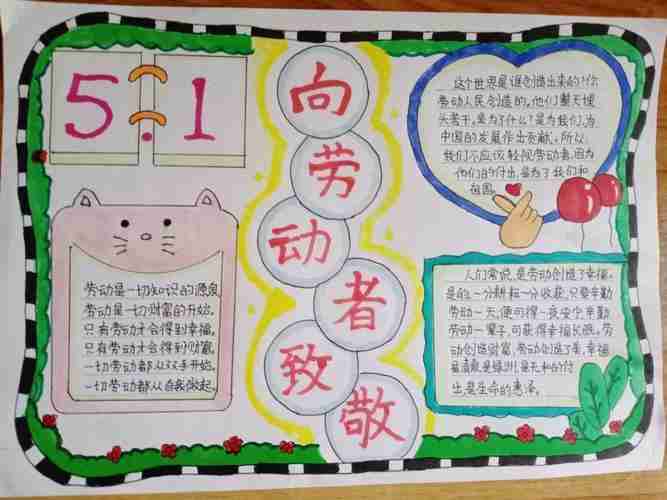 5.1
向
劳
动
者
致
敬
这个世界是谁创造出来的?你
劳动人民创造的,他们整天埋
头苦干,是为了什么?是为我们,为
中国的发展作出贡献。所以,
我们不应该轻视劳动者,因为
他们的付出,是为了我们和
祖国。
劳动是一切知识的源泉,
劳动是一切财富的开始。
只有劳动才会得到幸福。
只有劳动才会得到财富。
一切劳动都从双手开始。
一切劳动都从自我做起。
人们常说,是劳动创造了幸福。
是的,一分耕耘一分收获,只要辛勤
劳动一天,便可得一夜安宁,辛勤
劳动一辈子,可获得幸福长眠。劳
动创造财富,劳动创造了美,幸福
出,是生命的惠泽。